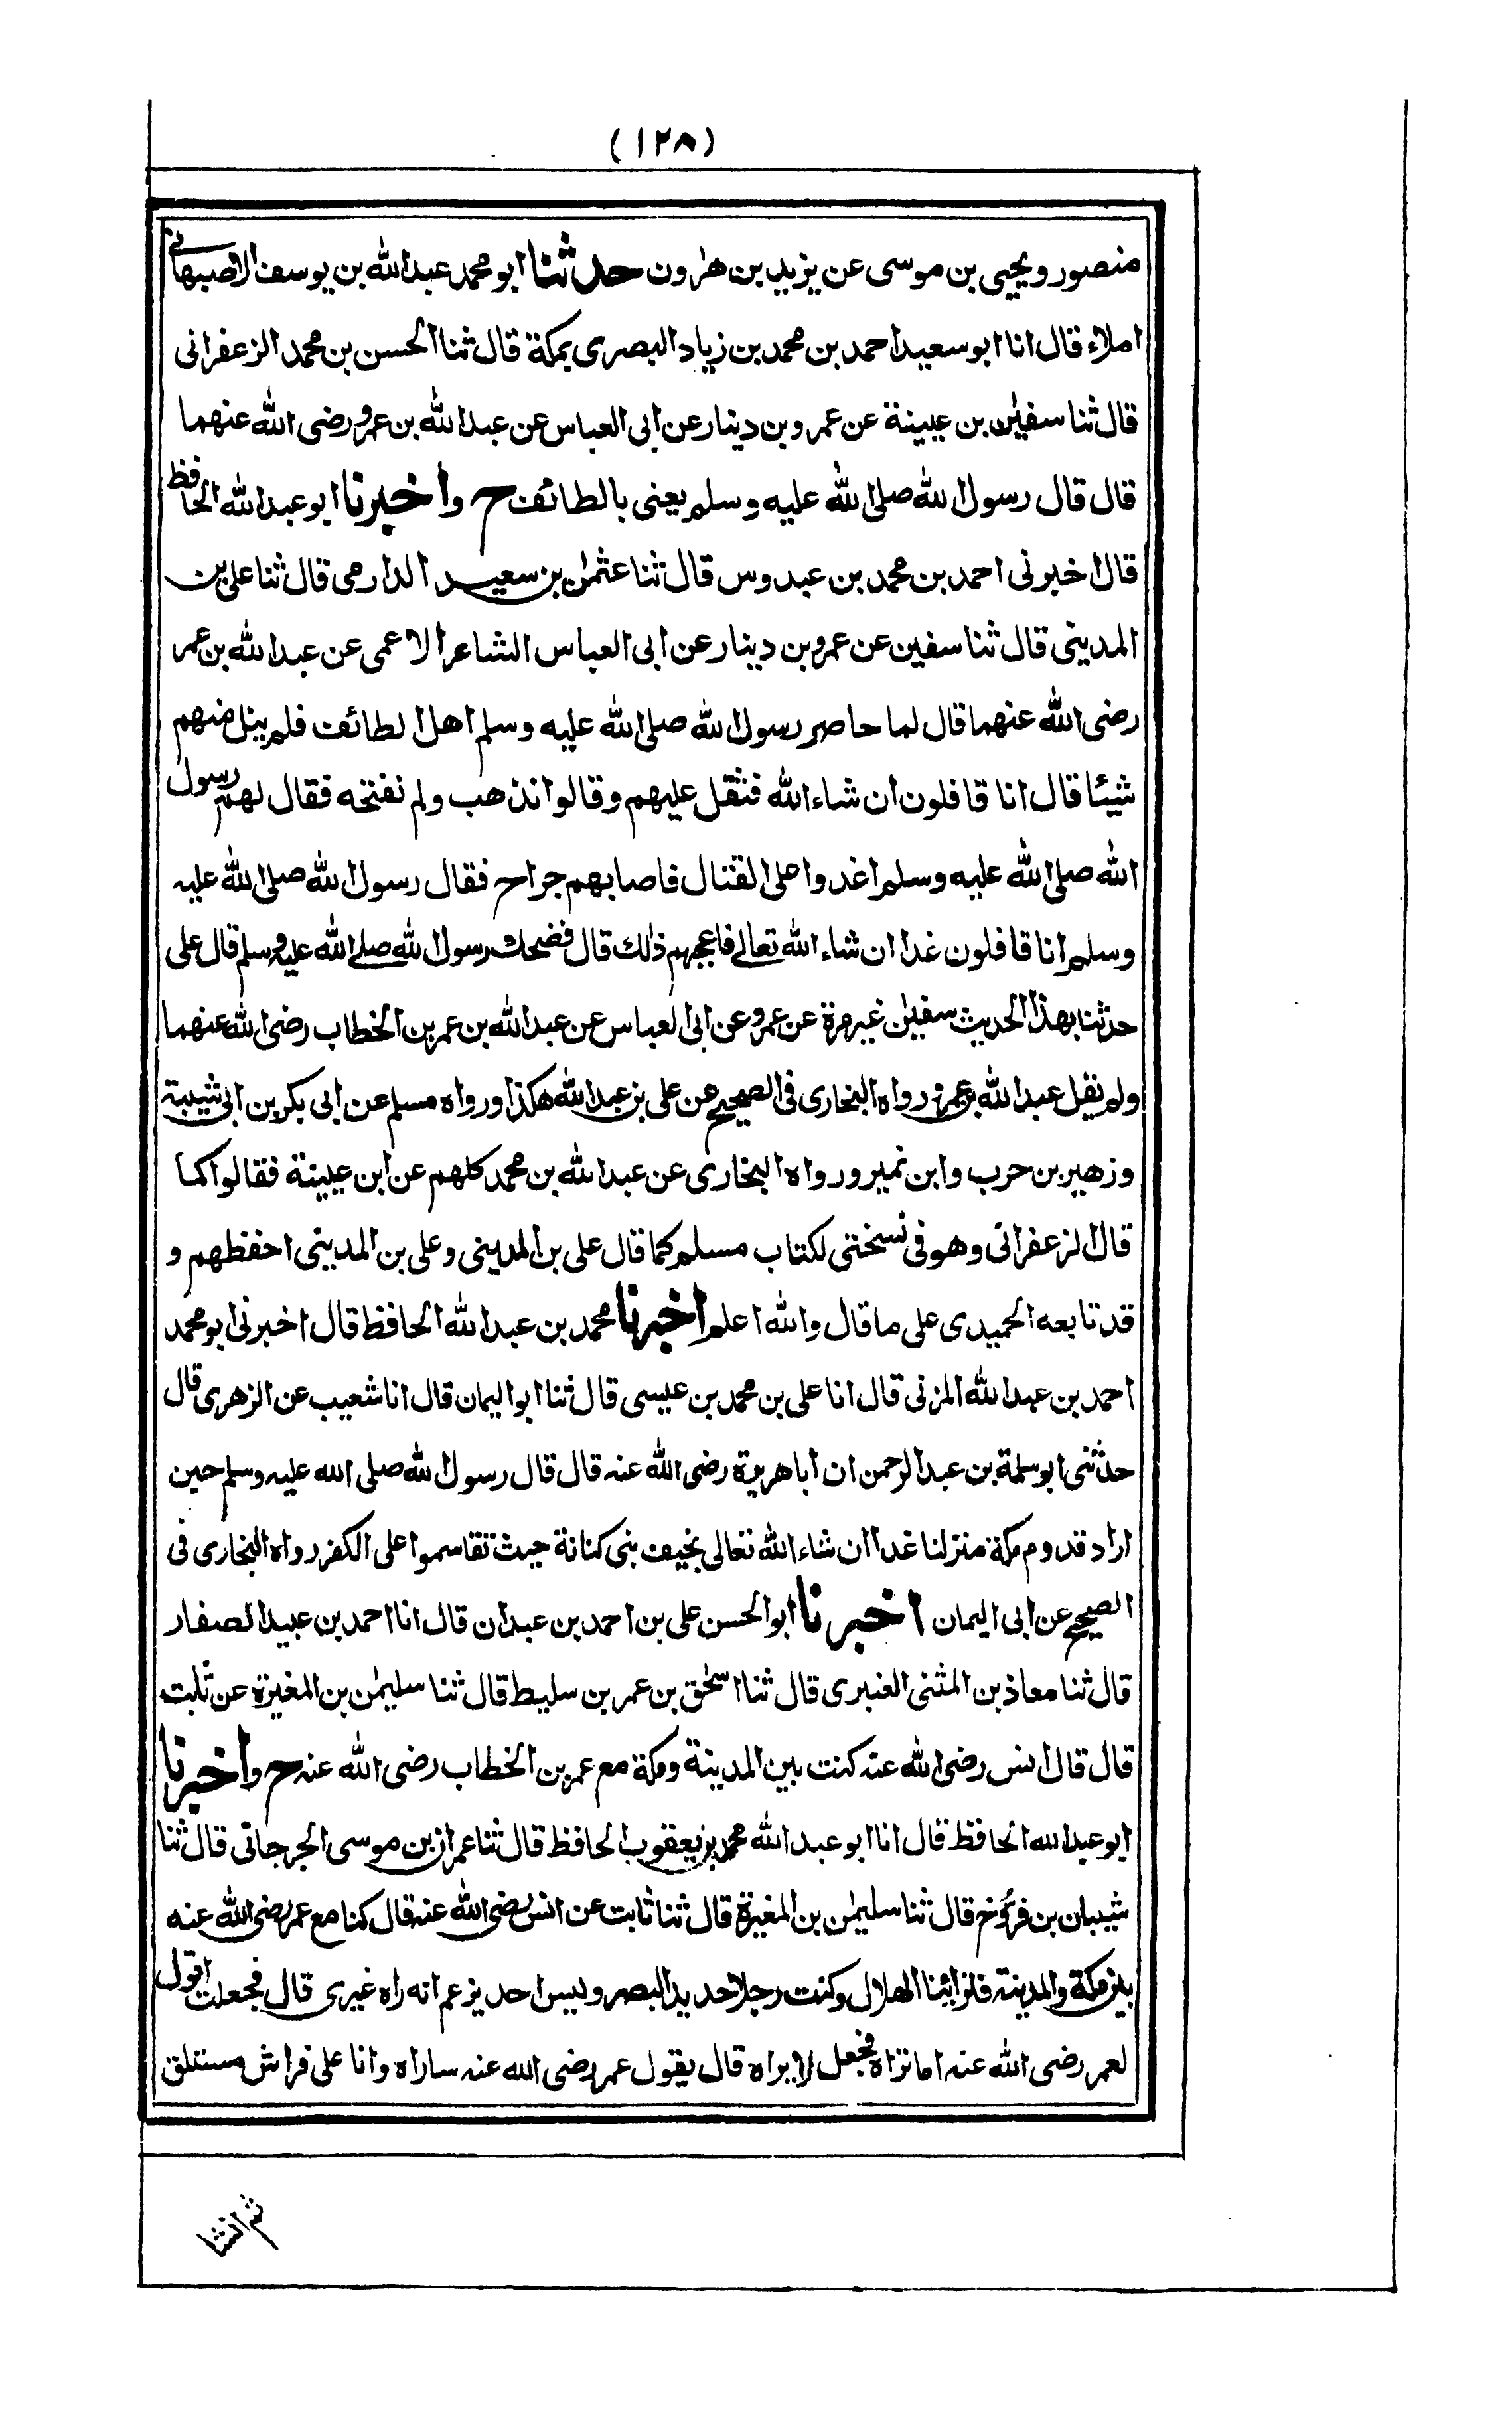 (١٢٨)
منصور ويحيى بن موسى عن يزيد بن هٰرون حدثنا ابو محمد عبد الله بن يوسف الاصبهانى
املاء قال انا ابو سعيد احمد بن محمد بن زياد البصرى بمكة قال ثنا الحسن بن محمد الزعفرانى
قال ثنا سفيٰن بن عيينة عن عمرو بن دينار عن ابى العباس عن عبد الله بن عمرو رضى الله عنهما
قال قال رسول الله صلى الله عليه وسلم يعنى بالطائف ح واخبرنا ابو عبد الله الحافظ
قال اخبرنى احمد بن محمد بن عبدوس قال ثنا عثمٰن بن سعيد الدارمى قال ثنا على بن
المدينى قال ثنا سفين عن عمرو بن دينار عن ابى العباس الشاعر الاعمى عن عبد الله بن عمر
رضى الله عنهما قال لما حاصر رسول الله صلى الله عليه وسلم اهل الطائف فلم ينل منهم
شيئا قال انا قافلون ان شاء الله فثقل عليهم وقالوا نذهب ولم نفتحه فقال لهم رسول
الله صلى الله عليه وسلم اغدوا على القتال فاصابهم جراح فقال رسول الله صلى الله عليه
وسلم انا قافلون غدا ان شاء الله تعالى فاعجبهم ذلك قال فضحك رسول الله صلى الله عليه وسلم قال على
حدثنا بهذا الحديث سفيٰن غير مرة عن عمرو عن ابى العباس عن عبد الله بن عمر بن الخطاب رضى الله عنهما
ولم يقل عبد الله بن عمرو رواه البخارى فى الصحيح عن على بن عبد الله هكذا ورواه مسلم عن ابى بكر بن ابى شيبة
وزهير بن حرب وابن نمير ورواه البخارى عن عبد الله بن محمد كلهم عن ابن عيينة فقالوا كما
قال الزعفرانى وهو فى نسختى لكتاب مسلم كما قال على بن المدينى وعلى بن المدينى احفظهم و
قد تابعه الحميدى على ما قال والله اعلم اخبرنا محمد بن عبد الله الحافظ قال اخبرنى ابو محمد
احمد بن عبد الله المزنى قال انا على بن محمد بن عيسى قال ثنا ابو اليمان قال انا شعيب عن الزهرى قال
حدثنى ابو سلمة بن عبد الرحمن ان ابا هريرة رضى الله عنه قال قال رسول الله صلى الله عليه وسلم حين
اراد قدوم مكة منزلنا غدا ان شاء الله تعالى بخيف بنى كنانة حيث تقاسموا على الكفر رواه البخارى فى
الصحيح عن ابى اليمان اخبرنا ابو الحسن على بن احمد بن عبدان قال انا احمد بن عبيد الصفار
قال ثنا معاذ بن المثنى العنبرى قال ثنا اسحٰق بن عمر بن سليط قال ثنا سليمٰن بن المغيرة عن ثابت
قال قال انس رضى الله عنه كنت بين المدينة ومكة مع عمر بن الخطاب رضى الله عنه ح واخبرنا
ابو عبد الله الحافظ قال انا ابو عبد الله محمد بن يعقوب الحافظ قال ثنا عمران بن موسى الجرجانى قال ثنا
شيبان بن فرُّوخ قال ثنا سليمٰن بن المغيرة قال ثنا ثابت عن انس رضى الله عنه قال كنا مع عمر رضى الله عنه
بين مكة والمدينة فتراٸنا الهلال وكنت رجلا حديد البصر وليس احد يزعم انه راه غيرى قال فجعلت اقول
لعمر رضى الله عنه اما تراه فجعل لا يراه قال يقول عمر رضى الله عنه ساراه وانا على فراش مستلق
ثم انشا